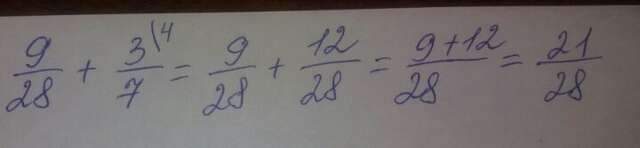 9/28 + 3\4/7 = 9/28 + 12/28 = 9+12/28 = 21/28